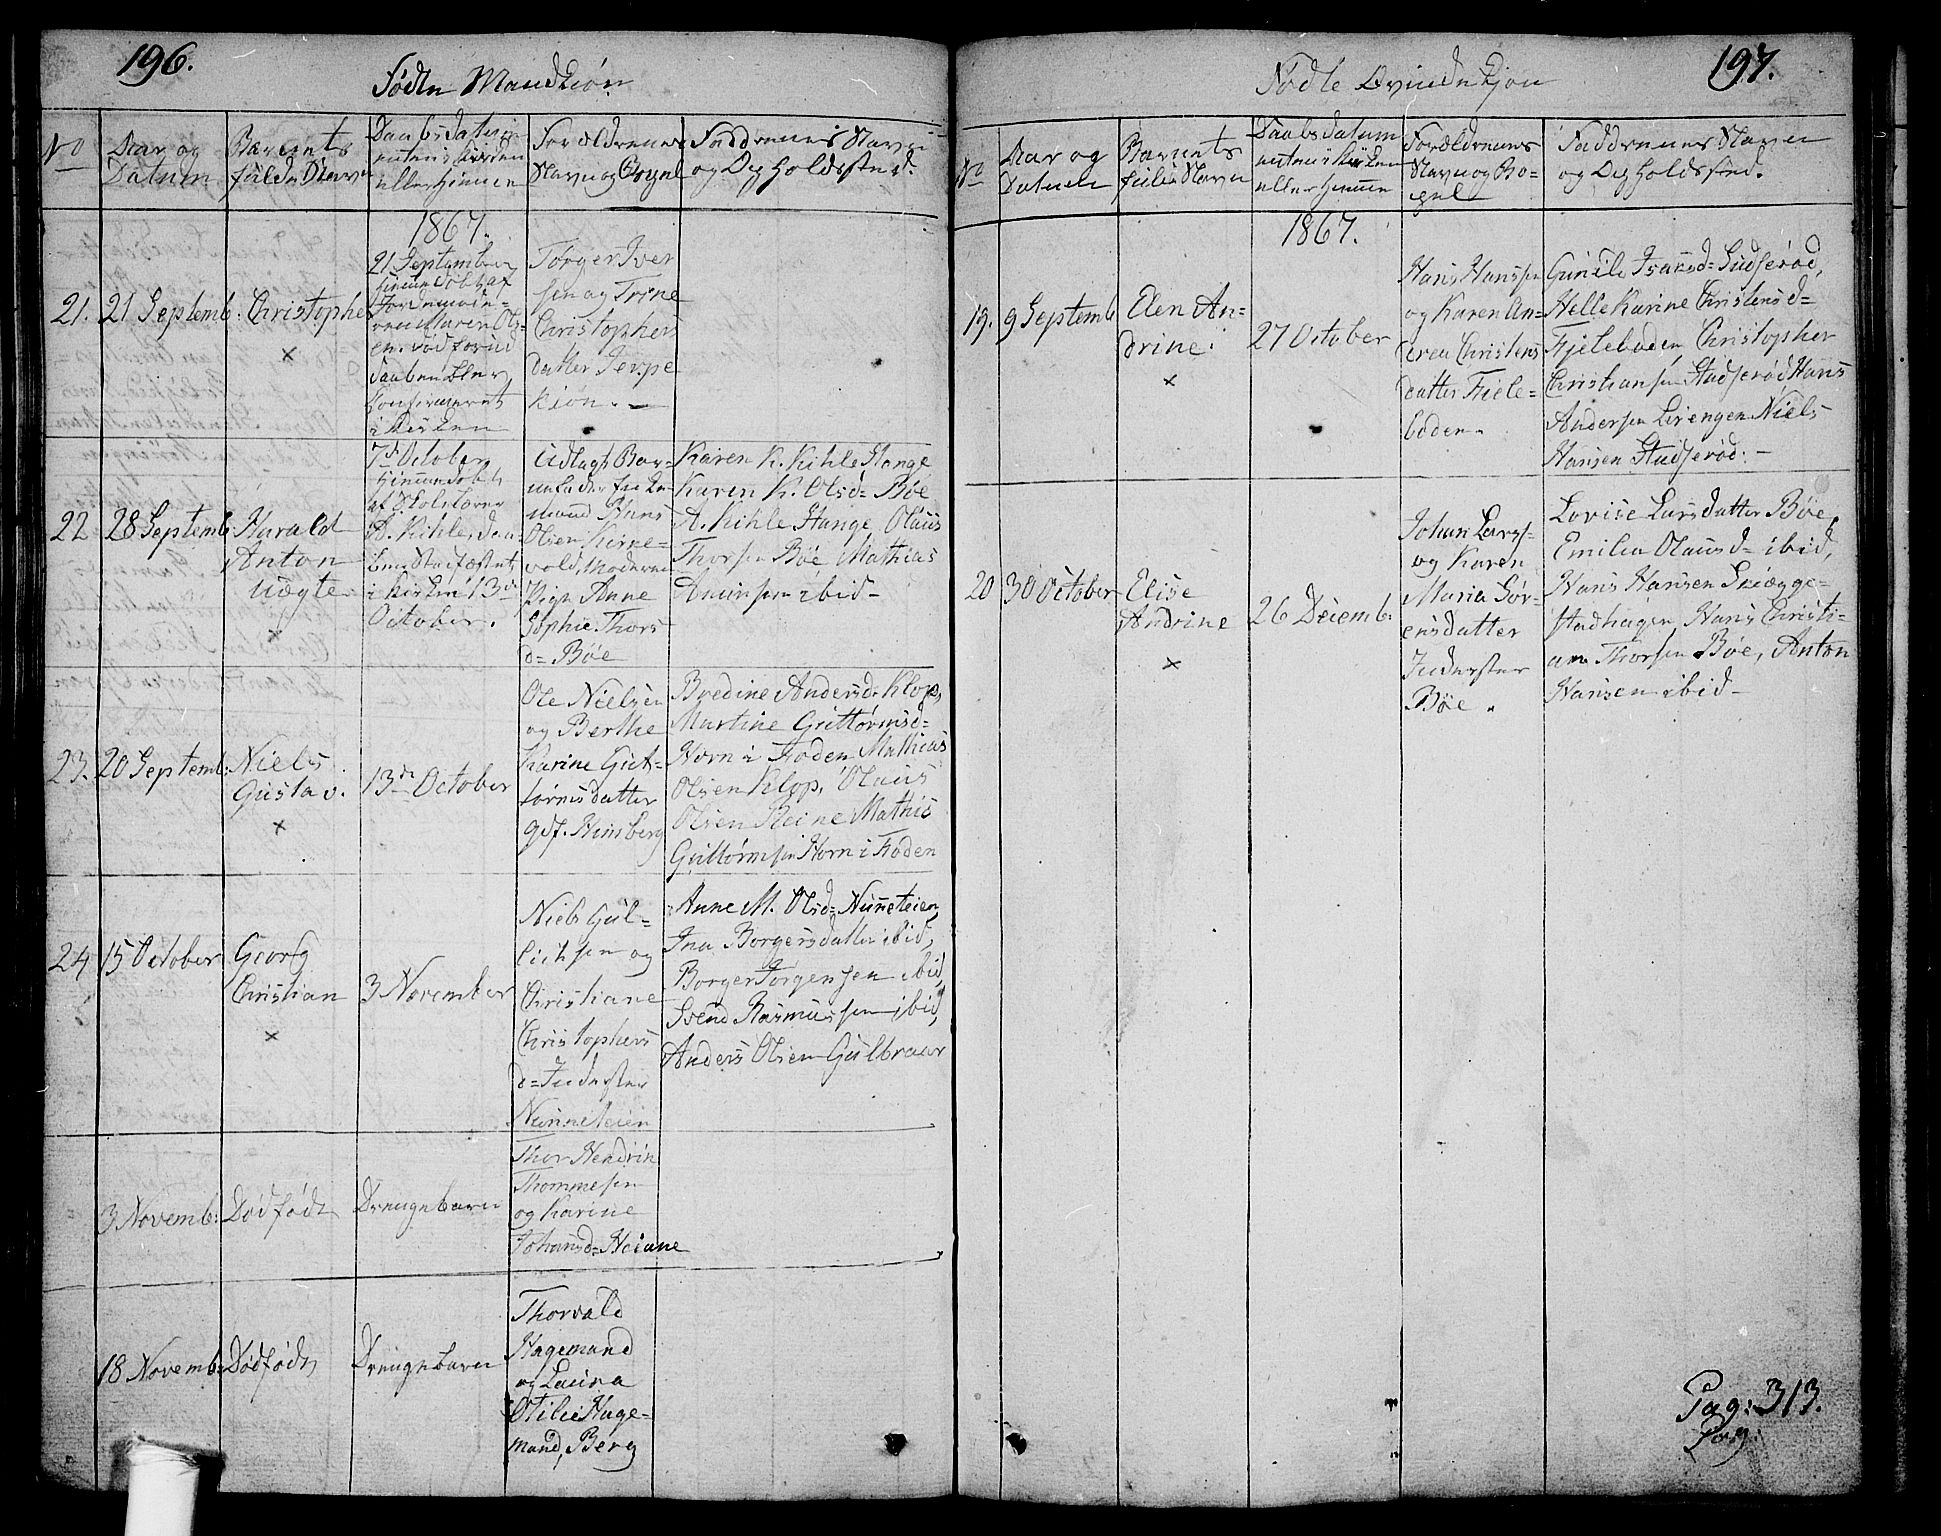 196.
Fødte Mandkiøn
No
Aar og
Datum
Barnets
fulde Navn
Daabsdatum
enten i Kirken
eller Hiemme
Forældrenes
Navn og Bopæl
Faddernes Navn
og Opholdssted.
1867.
21.
21 Septemb:
Christopher
×
21 September
hiemmedøbt af
Jordemode-
ren Maren Ols-
en
Daaben blev
confirmeret
i Kirken
Torger Iver
sen og Trine
Christophers
datter Jerpe
kiøn. —
22
28 Septemb
Harald
Anton
Uægte
×
7de October
hiemmedøbt
af Skolelærer
A. Kihle, Daa-
ben Stadfæstet
i Kirken 13de
October.
Udlagt Bar-
nefader
Hans
Olsen
vold, Moderen
Pige Anne
Sophie Thors
d= Bøe
Karen K. Kihle Stange
Karen K. Olsd= Bøe
A. Kihle Stange, Olaus
Thorsen Bøe Mathias
Amunsen ibid-
23.
20 Septemb:
Niels
Gustav.
×
13de October
Ole Nielsen
og Berthe
Karine Gut-
tormsdatter
Gdf. Himberg
Bredine Andersd. Klop,
Martine Guttormsd=
Horn i Foden Mathias
Olsen Klop, Olaus
Olsen Mathis
Guttormsen Horn i Foden
24
15 October
Georg
Christian
×
3 November
Niels Gul-
lichsen og
Christiane
Christophers
d= Inderster
Nunneteien
Anne M. Olsd= Nunneteien
Ina Borgersdatter ibid,
Borger Jørgensen ibid,
Svend Rasmussen ibid,
Anders Olsen Gulbraar
3 Novemb:
Dødfødt
Drengebarn
Thor Hendrik
Thommesen
og Karine
Johansd=
18 Novemb:
Dødfødt
Drengebarn
Thorvald
Hagemand
og Laura
Otilie Hage-
mand, Berg
197.
Fødte Qvindekjøn
No
Aar og
Datum
Barnets
fulde Navn
Daabsdatum
enten i Kirken
eller Hiemme
Forældrenes
Navn og Bo-
pæl
Faddernes Navn
og Opholdssted.
1867.
19.
9 Septemb
Elen An-
drine.
×
27 October
Hans Hanssen
og Karen An-
drea Christens
datter Fiele-
boden.
Gunile Isaksd=
Helle Karine Christensd=
Fjeleboden Christopher
Christiansen Hans
Andersen Niels
Hansen
20
30 October
Elise
Andrine
×
26 Decemb:
Johan Lars-
og Karen
Maria Sør-
ensdatter
Inderster
Bøe.
Lovise Larsdatter Bøe,
Emilie Olausd= ibid,
Hans Hansen Skiægge-
stadhagen, Hans Christi-
an Thorsen Bøe, Anton
Hansen ibid-
Pag: 313.